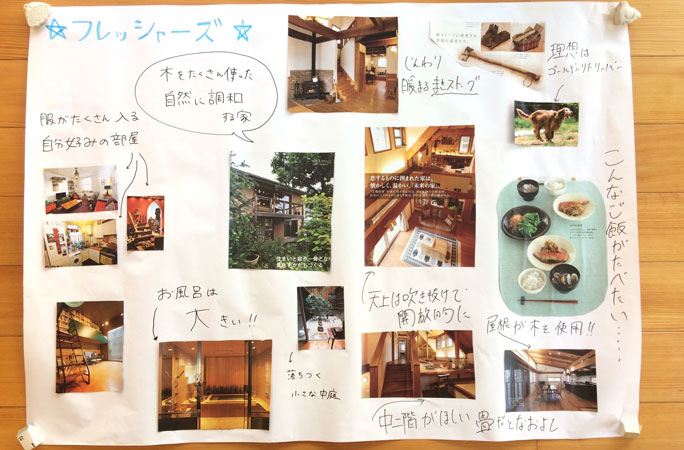 ☆フレッシャーズ☆
木をたくさん使った
自然に調和
する家
服がたくさん入る
自分好みの部屋
じんわり
暖まる薪ストーブ
理想は
ゴールデンリトリーバー
こんなご飯がたべたい……
恋するものに囲まれた家は、
懐かしく、温かい、「未来の家」。
お風呂は
大きい!!
落ちつく
小さな中庭
天上は吹き抜けで
開放的に
屋根が木を使用!!
中二階がほしい 畳だとなおよし